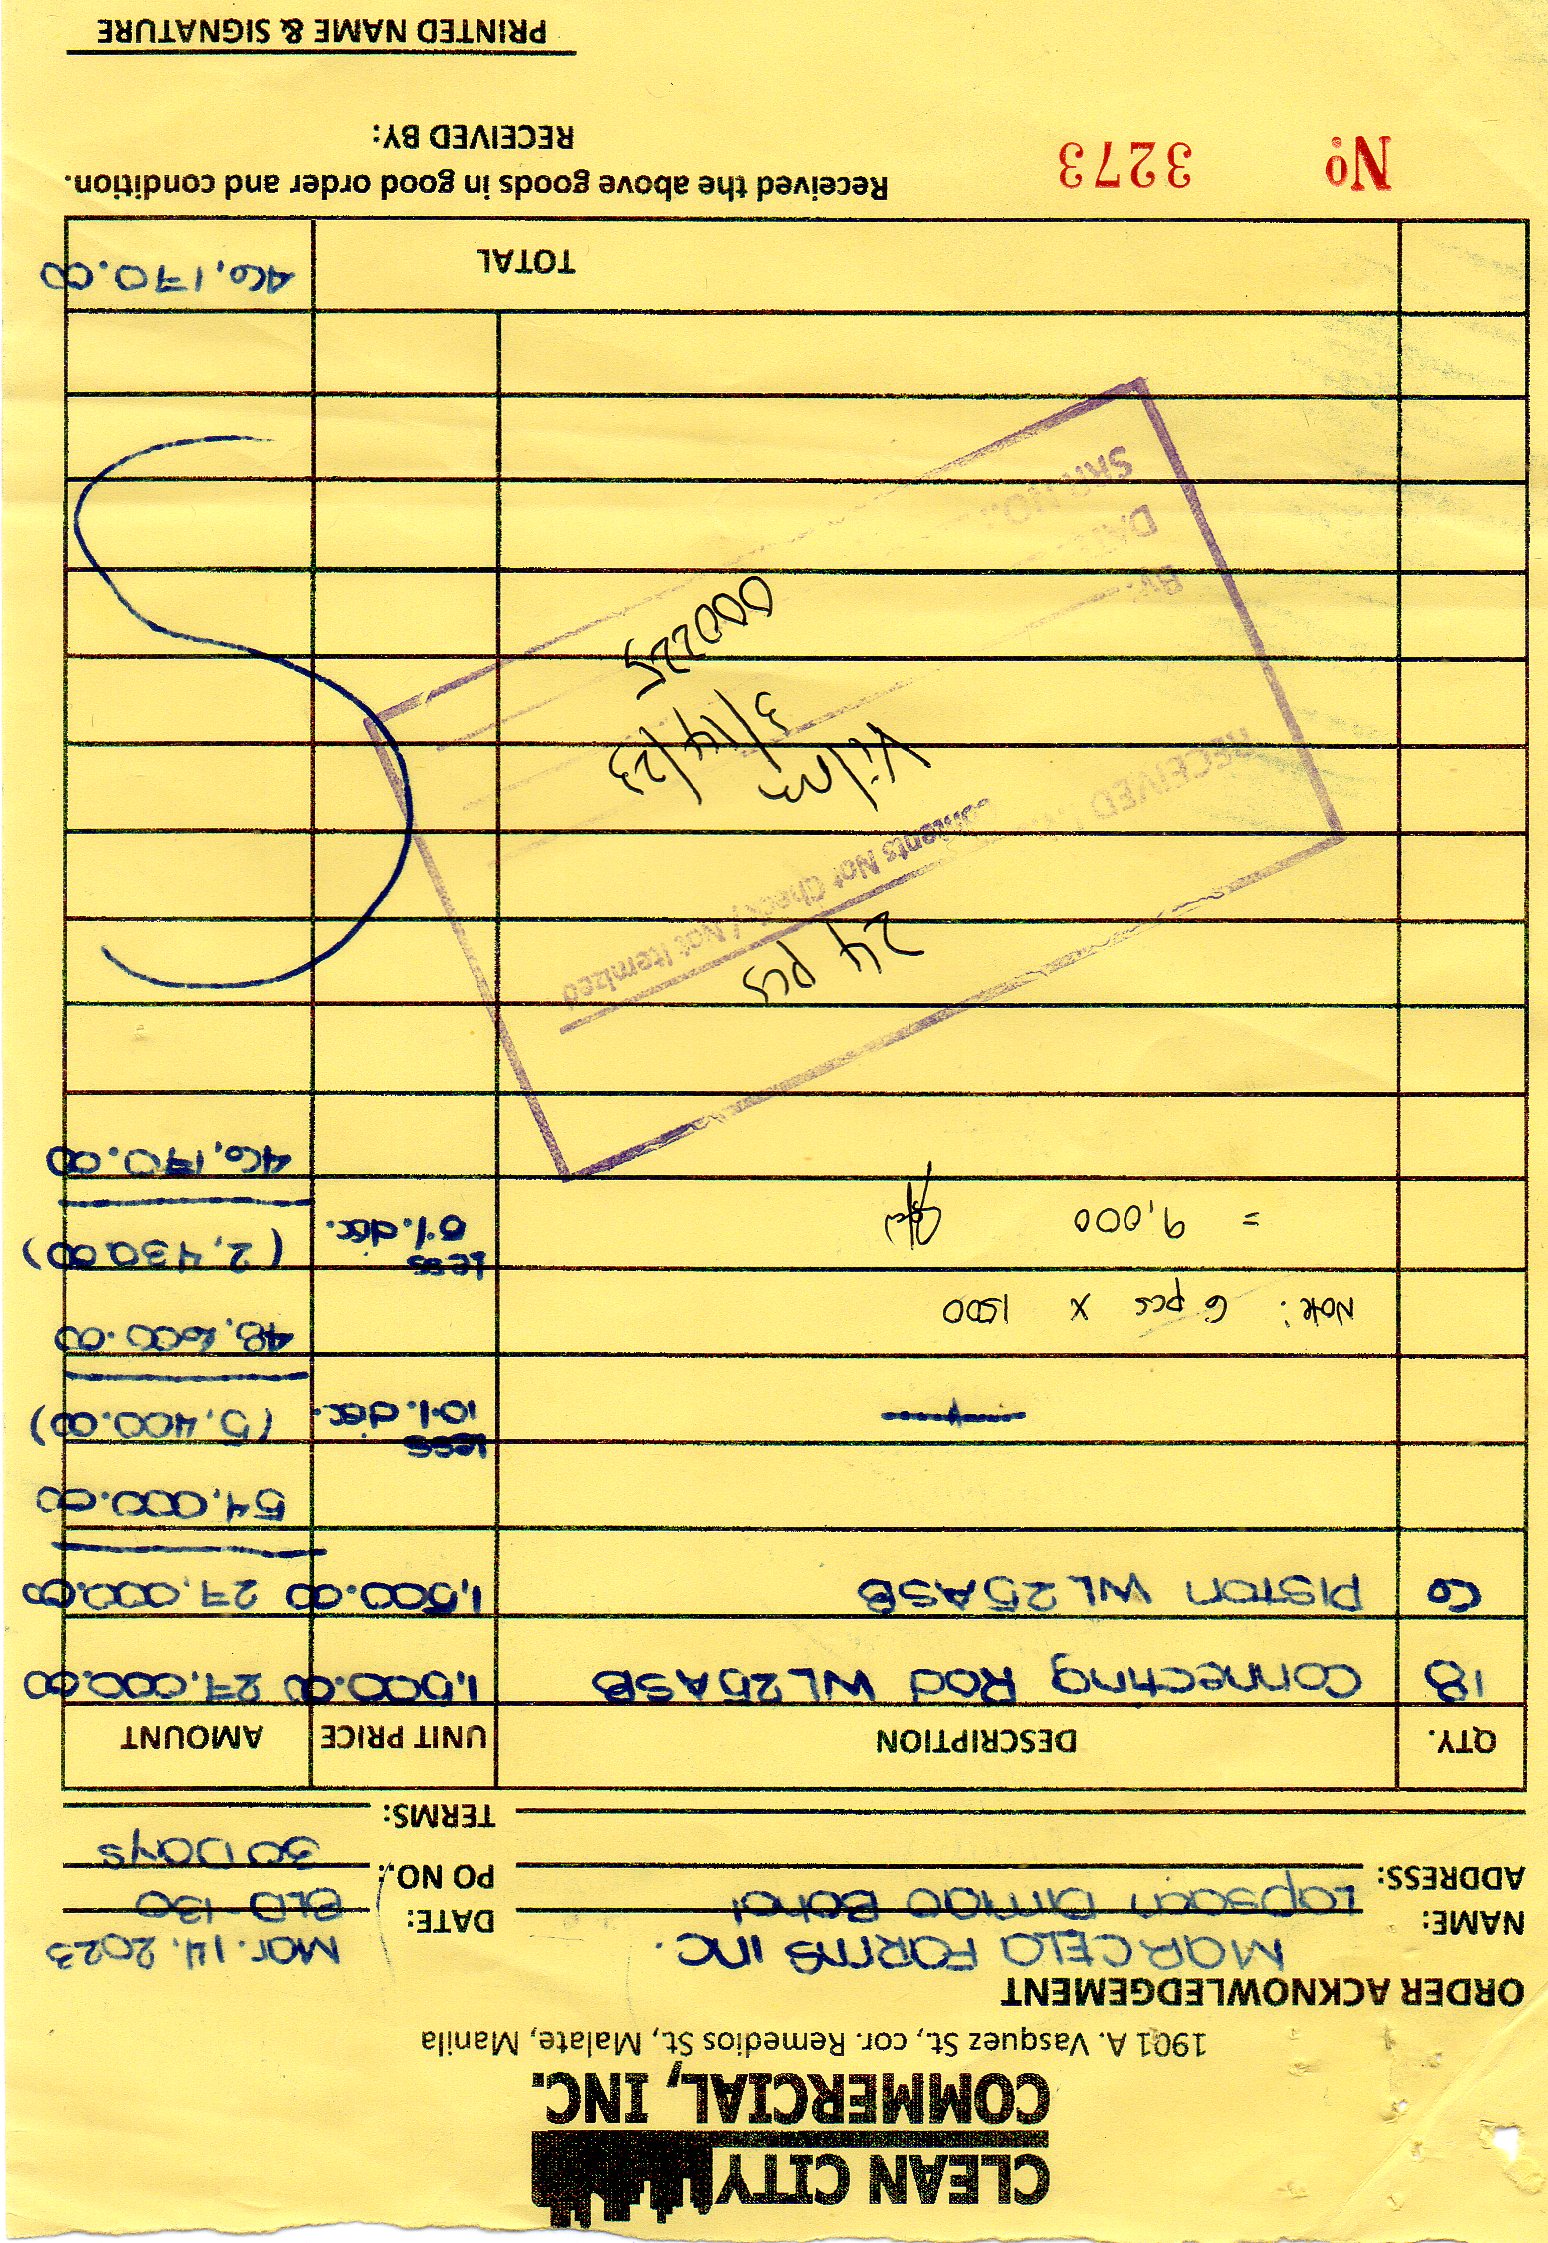 CLEAN CITY
COMMERCIAL, INC.
1901 A. Vasquez St., cor. Remedios St., Malate, Manila
ORDER ACKNOWLEDGEMENT
NAME: MARCELA FARMS INC. DATE: Mar. 14. 2023
ADDRESS: Lapsaon Dimiao Bohol PO NO.: BLD-130
TERMS: 30 DAYS
QTY. DESCRIPTION UNIT PRICE AMOUNT
18 Connecting Rod WL25ASB 1,500.00 27,000.00
6 PISTON WL25ASB 1,500.00 27,000.00
54,000.00
less
10%. disc. (5,400.00)
48,600.00
Note: 6 pcs x 1500
less
5%. disc. (2,430.00)
= 9,000
46,170.00
24 pcs
Contents Not Check / Not Itemized
RECEIVED
Vilma
3/14/23
000225
By:
DATE:
SRR NO.:
TOTAL 46,170.00
Nº 3273
Received the above goods in good order and condition.
RECEIVED BY:
PRINTED NAME & SIGNATURE